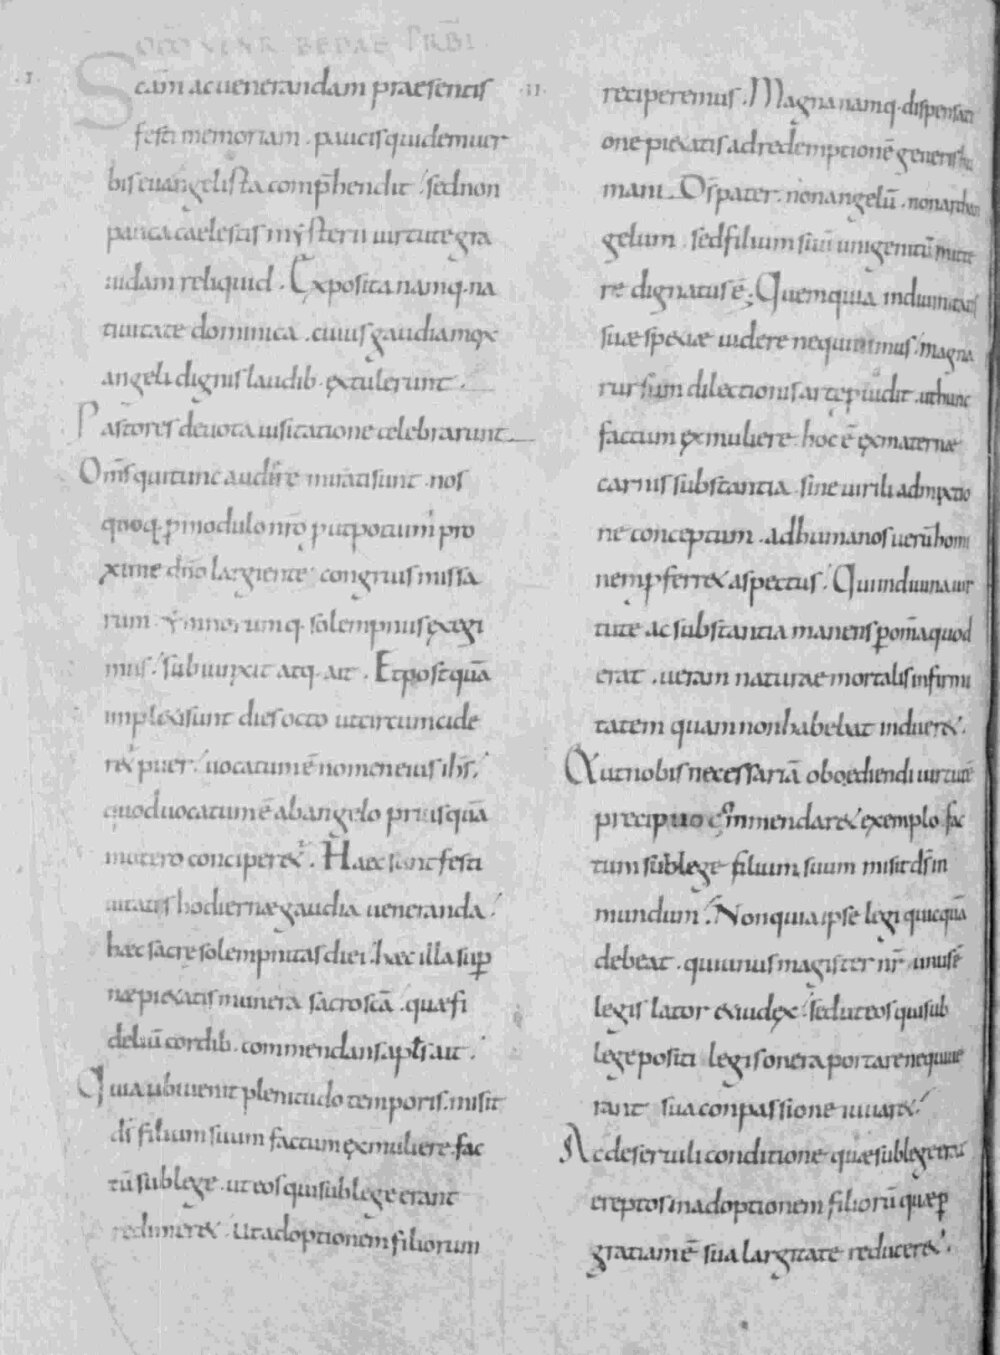 OMO VENR BEDAE PRBI
.I.
Scam ac uenerandam praesentis
festi memoriam . paucis quidem uer
bis euangelista comphendit . sed non
pauca caelestis mysterii uirtute gra
uidam reliquid . Exposita namq. na
tiuitate dominica . cuius gaudia mox
angeli dignis laudib. extulerunt .
Pastores deuota uisitatione celebrarunt
Oms qui tunc audire mirati sunt . nos
quoq. p modulo nro put potuim pro
xime dno largiente congruis missa
rum ymnorumq. solempniis exegi
mus . subiunxit atq. ait . Et postquā
impleti sunt dies octo ut circumcide
ret puer . uocatum ē nomen eius ihs .
quod uocatum ē ab angelo priusquā
in utero conciperet . Haec sunt festi
uitatis hodiernae gaudia ueneranda .
haec sacre solempnitas diei . haec illa sup
nae pietatis munera sacroscā . quae fi
deliū cordib. commendans apls ait .
Quia ubi uenit plenitudo temporis . misit
ds filium suum factum ex muliere . fac
tū sub lege . ut eos qui sub lege erant
redimeret . ut adoptionem filiorum
.II.
reciperemus . Magna namq. dispensati
one pietatis ad redemptionē generis hu
mani . Ds pater . non angelū . non archan
gelum . sed filium suū unigenitū mitte
re dignatus ē ; Quem quia in diuinitatis
suae speciae uidere nequiuimus . magna
rursum dilectionis arte puidit . ut hunc
factum ex muliere hoc ē ex maternae
carnis substantia . sine uirili admixtio
ne conceptum . ad humanos uerū homi
nem pferret aspectus . Qui in diuina uir
tute ac substantia manens p oma quod
erat . ueram naturae mortalis infirmi
tatem quam non habebat indueret .
Qut nobis necessariā oboediendi uirtutē
precipuo commendaret exemplo . fac
tum sub lege filium suum misit ds in
mundum . Non quia ipse legi quicquā
debeat . qui unus magister nr . unus ē
legis lator et iudex . sed ut eos qui sub
lege positi legis onera portare nequiue
rant sua conpassione iuuaret .
Ac de seruili conditione quae sub lege erat
ereptos in adoptionem filiorū quae p
gratiam ē sua largitate reduceret .